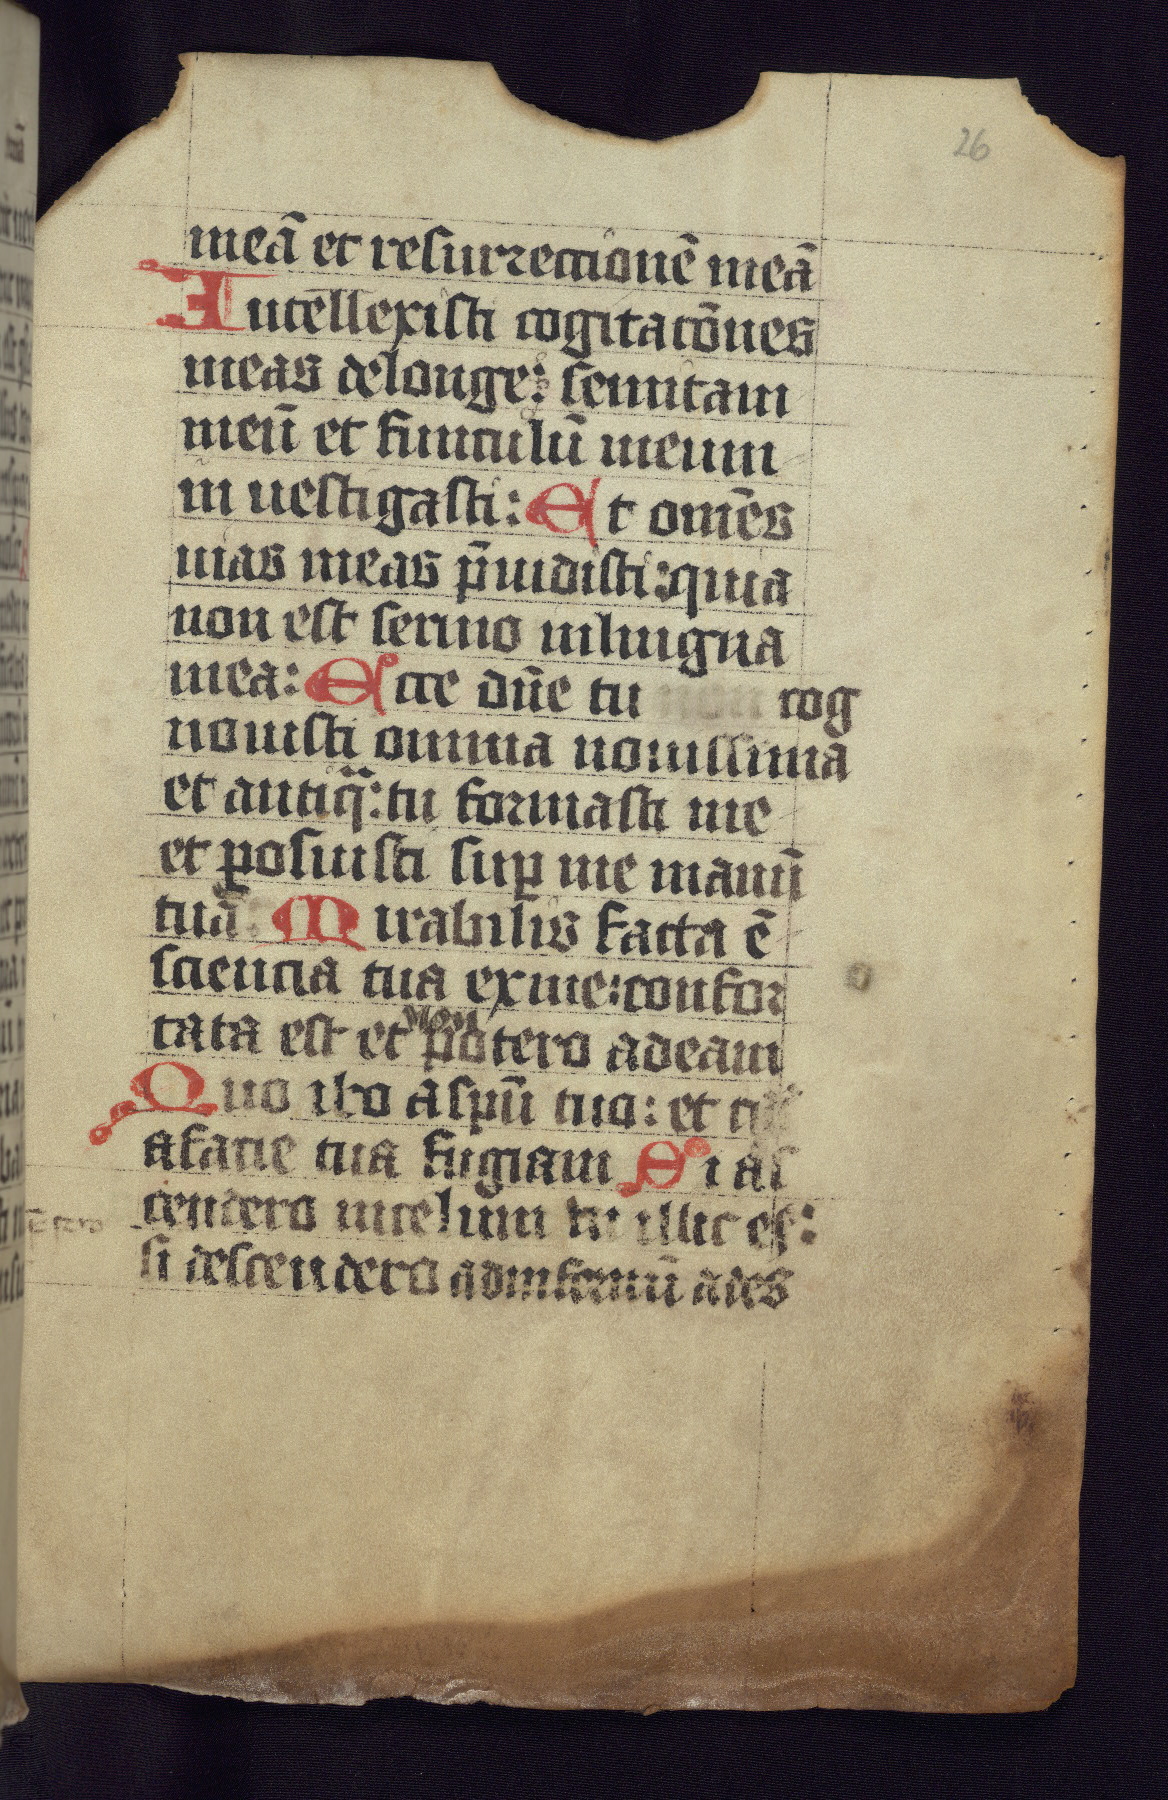 26
meā et resurrectionē meā
Intellexisti cogitacōnes
meas delonge: semitam
meū et funiculū meum
in uestigasti: Et omēs
uias meas p̄uidisti: quia
non est sermo inlingua
mea: Ecce dn̄e tu non cog
nouisti omnia nouissima
et antiq̄: tu formasti me
et posuisti sup me manū
tuā: Mirabilis facta ē
sciencia tua exme: confor
tata est et non potero adeam
Quo ibo aspū tuo: et
afacie tua fugiam Si as
cendero incelum tu illic es:
si descendero adinfernū ades